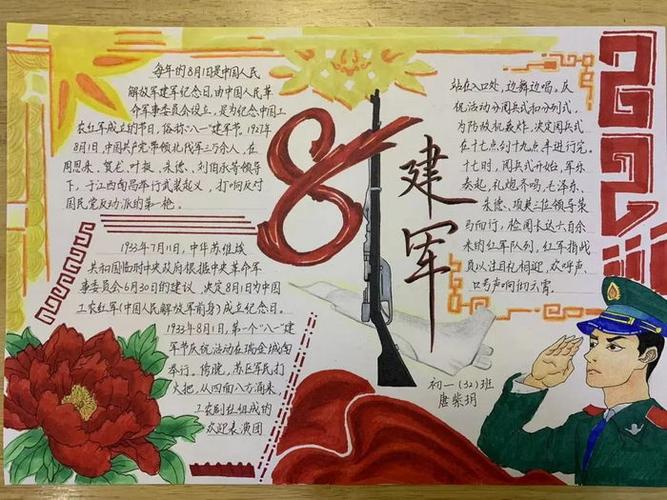 每年的8月1日是中国人民
解放军建军纪念日,由中国人民革
命军事委员会设立,是为纪念中国工
农红军成立的节日,俗称"八一"建军节。1927年
8月1日,中国共产党带领北伐军三万余人,在
周恩来、贺龙、叶挺、朱德、刘伯承等领导
下,于江西南昌举行武装起义,打响反对
国民党反动派的第一枪。
1933年7月11日,中华苏维埃
共和国临时中央政府根据中央革命军
事委员会6月30日的建议,决定8月1日为中国
工农红军(中国人民解放军前身)成立纪念日。
1933年8月1日,第一个"八一"建
军节庆祝活动在瑞金城内
举行。傍晚,苏区军民打
火把,从四面八方涌来,
工农剧社组成的
欢迎表演团
81
建军
站在入口处,边舞边唱。庆
祝活动分阅兵式和分列式,
为防敌机轰炸,决定阅兵式
在十七点到十九点半进行完。
十七时,阅兵式开始,军乐
奏起,礼炮齐鸣,毛泽东、
朱德、项英三位领导策
马而行,检阅长达六百余
米的红军队列,红军指战
员以注目礼相迎,欢呼声、
口号声响彻云霄。
初一(32)班
唐紫玥